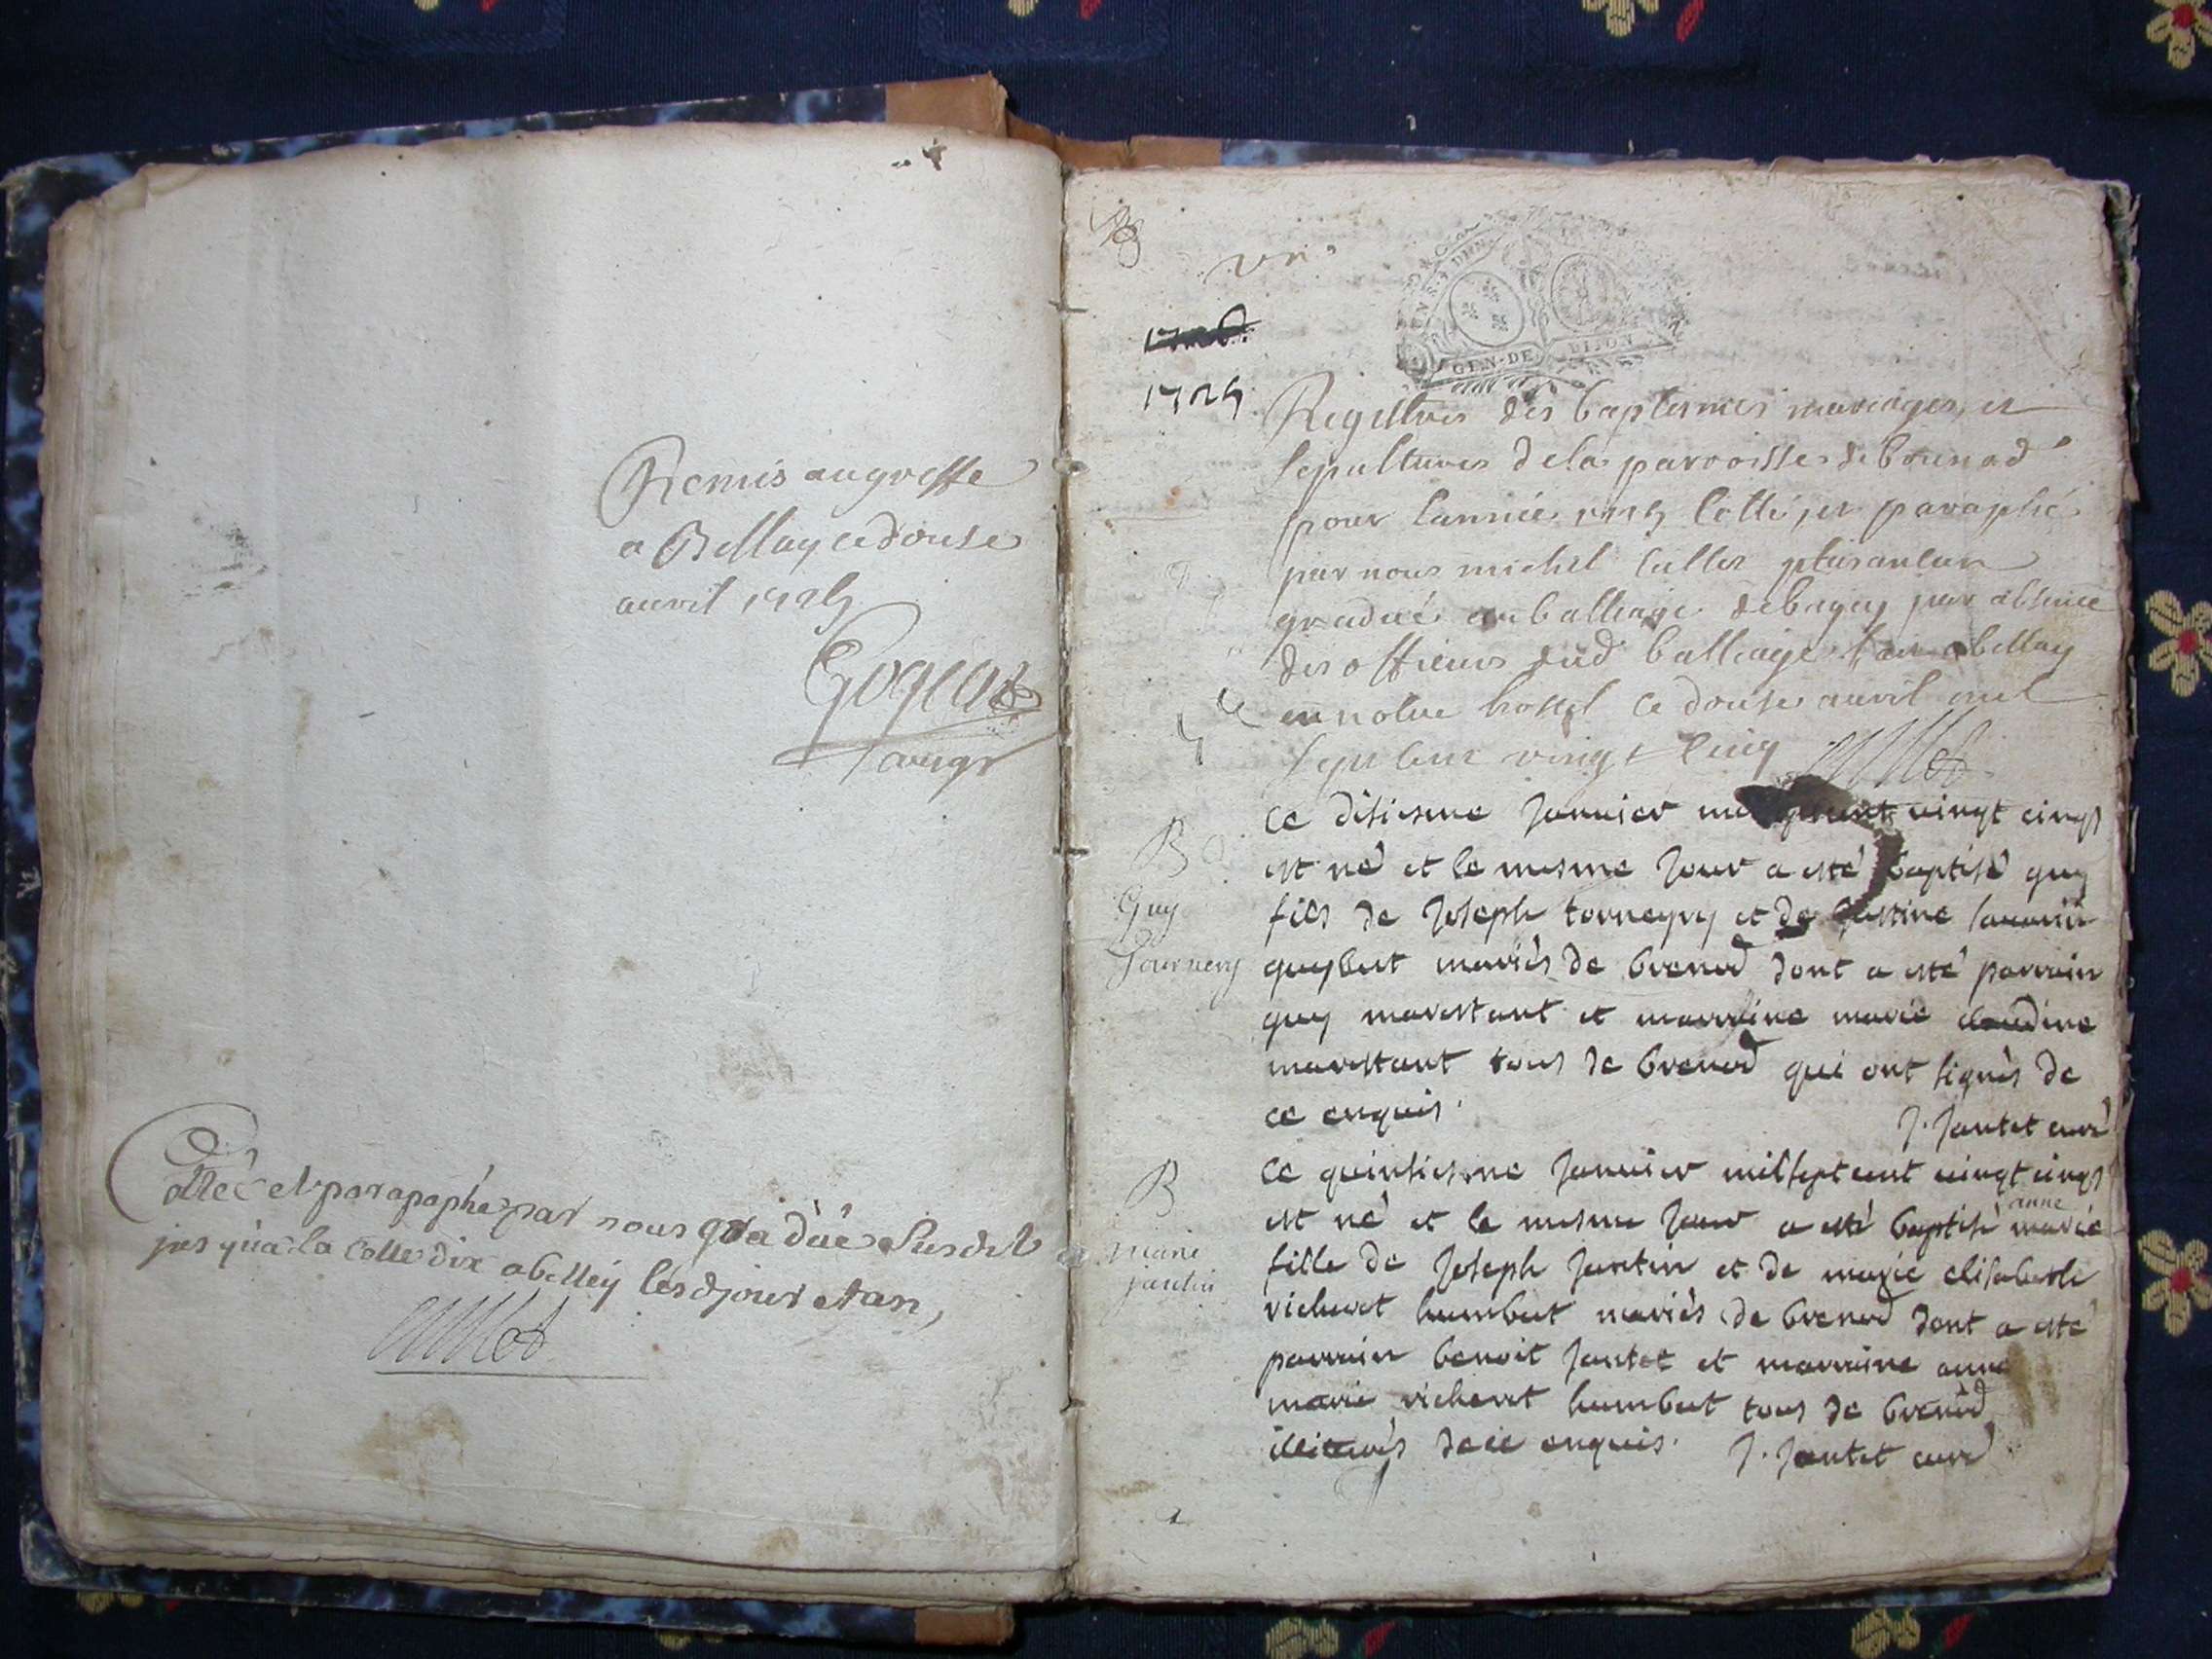 Remis au greffe
a Bellay ce douse
avril 1725
Cottéé et parapaphé par nous gradùé Susdit
jusqu'à la Cotte dix a belley lesd jour et an,
un
1725
GEN·DE DIJON
Registres des baptesmes mariages, et
sepultures dela parroisse de brenod
pour lannée 1725 Cotté, et paraphé
par nous michel Cullet plus ancien
gradué au balliage debugey par absence
des officiers dud balliage fait abellay
en notre hostel ce douse avril mil
sept cent vingt Cinq Cullet
B
Guy
Tournery
ce disiesme januier mil sept cent vingt cinq
est né et le mesme jour a esté baptisé guy
fils de joseph tornegry et de justine
mariés de brenod dont a esté parrain
guy marestant et marraine marie claudine
marestant tous de brenod qui ont signés de
ce enquis.
J. jantet curé
B
marie
jantin
ce quinsiesme januier mil sept cent vingt cinq
est né et le mesme jour a esté baptisé anne marie
fille de joseph jantin et de marie elisabeth
richeret humbert mariés de brenod dont a esté
parrain benoit jantet et marraine anne
marie richeret humbert tous de brenod
illiterés de ce enquis. J. jantet curé